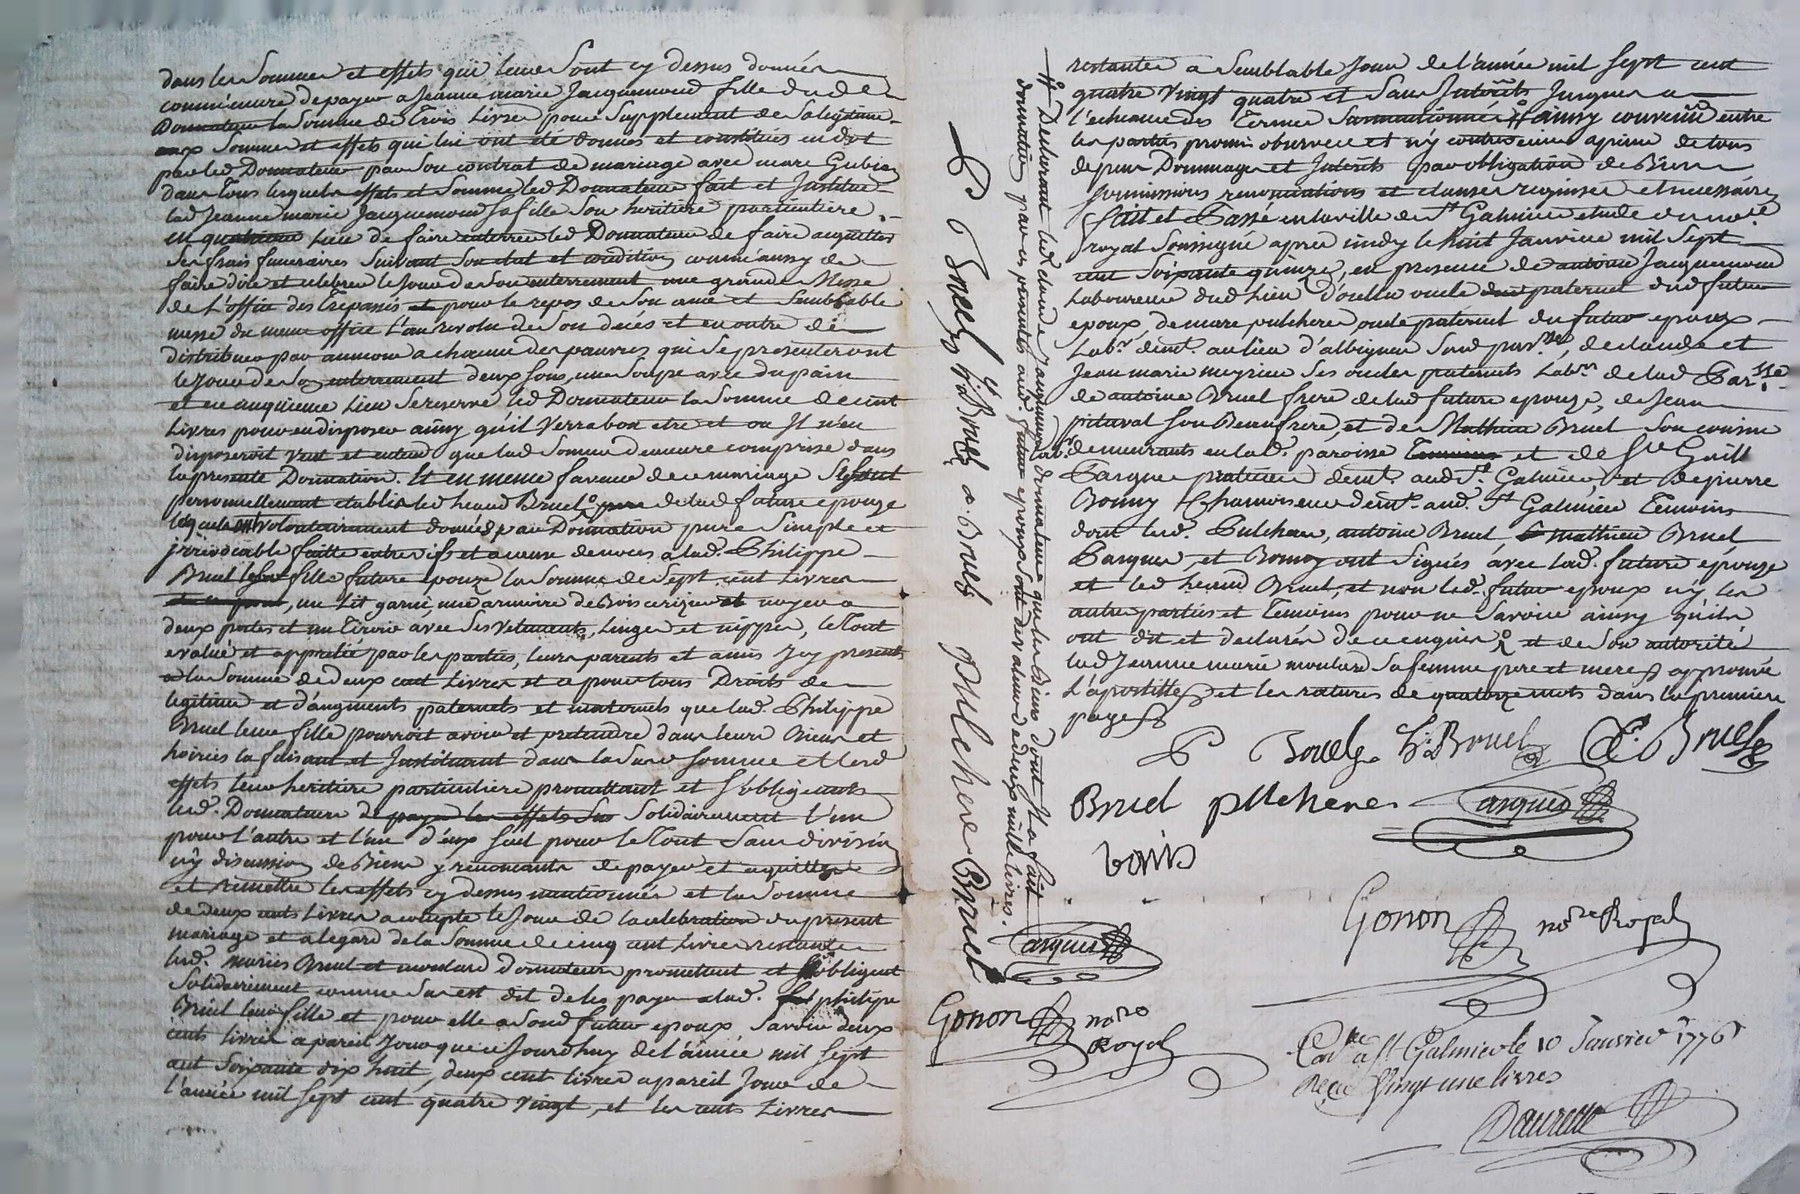 dans les sommes et effets qui leur sont cy dessus donnés
commencera de payer a Jeanne marie Jacquemond fille dud.
Donnateur la Somme de trois Livres pour Supplement de Sa legitime
aux Sommes et effets qui lui ont été donnés et constitués en dot
par led Donnateur par Son contrat de mariage avec marc Gubian
dans tous lesquels effets et Sommes led Donnateur fait et Institue
lad Jeanne marie Jacquemond sa fille Son heritiere particuliere.
en quatrieme Lieu de faire enterrer led Donnateur de faire acquitter
ses frais funeraires Suivant Son etat et condition comme aussy de
faire dire et celebrer le Jour de Son enterrement une grande Messe
de L'office des trepassés et pour le repos de Son ame et Semblable
messe du meme office L'an revolu de Son decés et en outre de
distribuer par aumone a chacun des pauvres qui Se presenteront
le Jour de Son enterrement deux Sous, une Soupe avec du pain
et en cinquieme Lieu Se reserve led Donnateur la Somme de cent
Livres pour en disposer ainsy qu'il verra bon etre et ou Il n'en
disposeroit veut et entend que lad Somme demeure comprise dans
la presente Donnation. Et en meme faveur de ce mariage Se Sont
personnellement etablis led heraud Bruel pere de lad future epouze
lesquels ont volontairement donnés par Donnation pure Simple et
irrevocable faitte entre vifs et a cause de noces a lad. Philippe
Bruel leur fille future epouze la Somme de Sept cent Livres
, un Lit garni, une armoire de Bois cerizier et noyer a
deux portes et un tiroir avec Ses vetements, Linges et nippes, le tout
evalué et appretié par les parties, leurs parents et amis Icy presents
a la Somme de deux cent Livres et ce pour tous Droits de
legitime et d'augments paternels et maternels que lad. Philippe
Bruel leur fille pourroit avoir et pretendre dans leurs Biens et
hoiries la faisant et Instituant dans la Susd Somme et lesd
effets leur heritiere particuliere promettant et S'obligeants
lesd. Donnateurs de payer les effets Sus Solidairement l'un
pour l'autre et l'un d'eux Seul pour le tout Sans division
n'y discussion de Biens y renoncants de payer et aquitter
et remettre les effets cy dessus mentionnés et la Somme
de deux cents Livres a compte le Jour de la celebration du present
mariage et a legard de la Somme de cinq cent Livres restante
lesd. mariés Bruel et moulard donnateurs promettent et S'obligent
Solidairement comme Sus est dit de les payer a lad. philipe
Bruel leur fille et pour elle a Sond futur epoux Savoir deux
cents livres a pareil Jour que ce Jourdhuy de l'année mil Sept
cent Soixante dix huit, deux cent livres a pareil Jour de
l'année mil Sept cent quatre vingt, et les cents Livres
P Bruel h. Bruel a. Bruel pulchere Bruel
# Declarant led donnateur que les Biens dont Il a fait
donnation par ces presentes aud. futur epoux Sont de valeur de deux mille livres.
arques
Gonon nore
Royal
restantes a Semblable Jour de l'année mil Sept cent
quatre vingt quatre et Sans Interêts Jusques a
l'echeance des termes Susmentionnés # ainsy convenu entre
les parties promis observer et n'y contrevenir a peine de tous
depens Dommages et Interêts par obligation de Biens
Soumissions renonciations et clauses requises et necessaires
fait et Passé en la ville de St Galmier etude du nore
royal Soussigné apres midy le huit Janvier mil Sept
cent Soixante quinze, en presence de antoine Jacquemond
Laboureur dud Lieu oncle paternel dud futur
epoux, de marc pulchere oncle paternel du futur epoux
Labr. demt. au lieu d'albigneu Susd parsse, de claude et
Jean marie meyrieu Ses oncles paternels Labrs. de lad Parsse
de antoine Bruel frere de lad future epouze, de Jean
pituval Son Beaufrere, et de Mathieu Bruel Son cousin
labr. demeurants en lad. paroisse et de Sr Guill
Parque praticien demt. aud St. Galmier, et de pierre
Bonny Chamoiseur demt. aud. St Galmier temoins
dont lesd. Pulchere, antoine Bruel, mathieu Bruel
Parque, et Bonny ont Signés avec lad. future epouze
et led heraud Bruel, et non led. futur epoux n'y les
autres parties et temoins pour ne Savoir ainsy qu'ils
ont dit et declarés de ce enquis et de Son autorité
lad Jeanne marie moulard Sa femme pere et mere approuvé
L'apostille et les ratures de quatorze mots dans la premiere
page
P Bruel h. Bruel A. Bruel
Bruel pulchere arques
bonis
Gonon nore Royal
Conle a St Galmier le 10 Janvier 1776
Reçu Vingt une livres
Daurelle